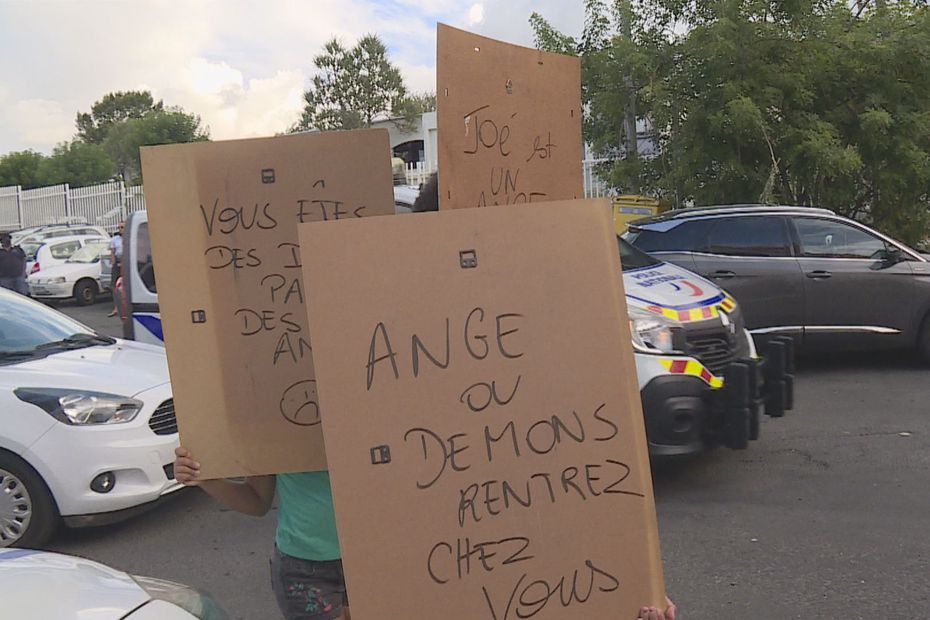 JOÉ EST
UN
ANGE
VOUS ÊTES
DES
PA
DES
AN
ANGE
OU
DEMONS
RENTREZ
CHEZ
VOUS
POLICE
NATIONALE